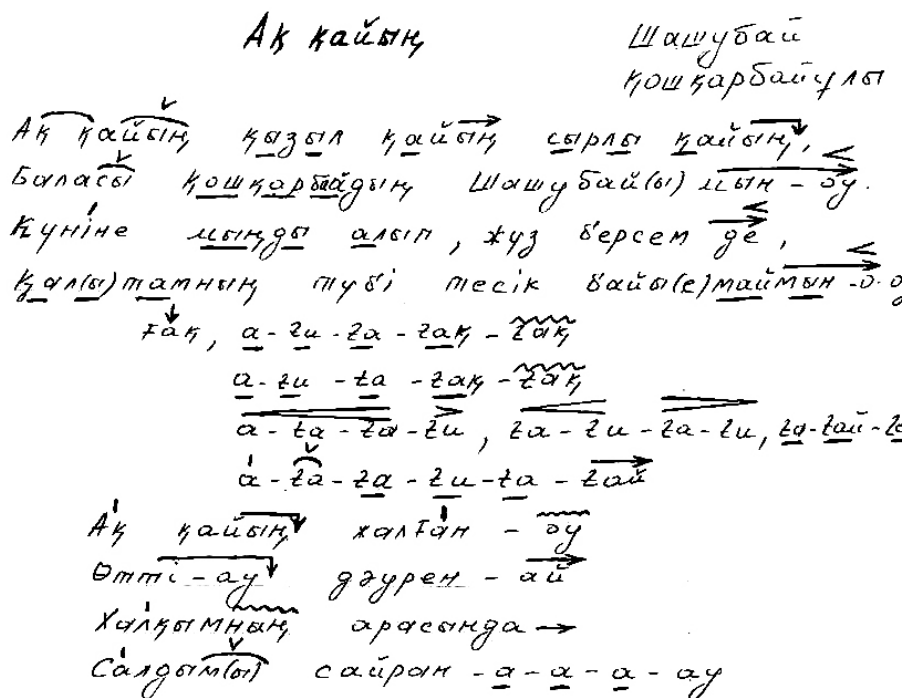 Ақ қайың
Шашубай
қошқарбайұлы
Ақ қайың қызыл қайың сырлы қайың,
Баласы қошқарбайдың Шашубай(ы) мын - оу.
Күніне мыңды алып, жүз берсем де,
Қал(ы)тамның түбі тесік байы(е)маймын -о-оу
Ғақ, а - ги - га - гақ - гақ
а - ги - га - гақ - гақ
а - га - га - ги, га - ги - га - ги, га - гай - га
а - га - га - ги - га - гай
Ақ қайың халған - оу
Өтті - ау дәурен - ай
Халқымның арасында
Салдым(ы) сайран - а - а - а - ау